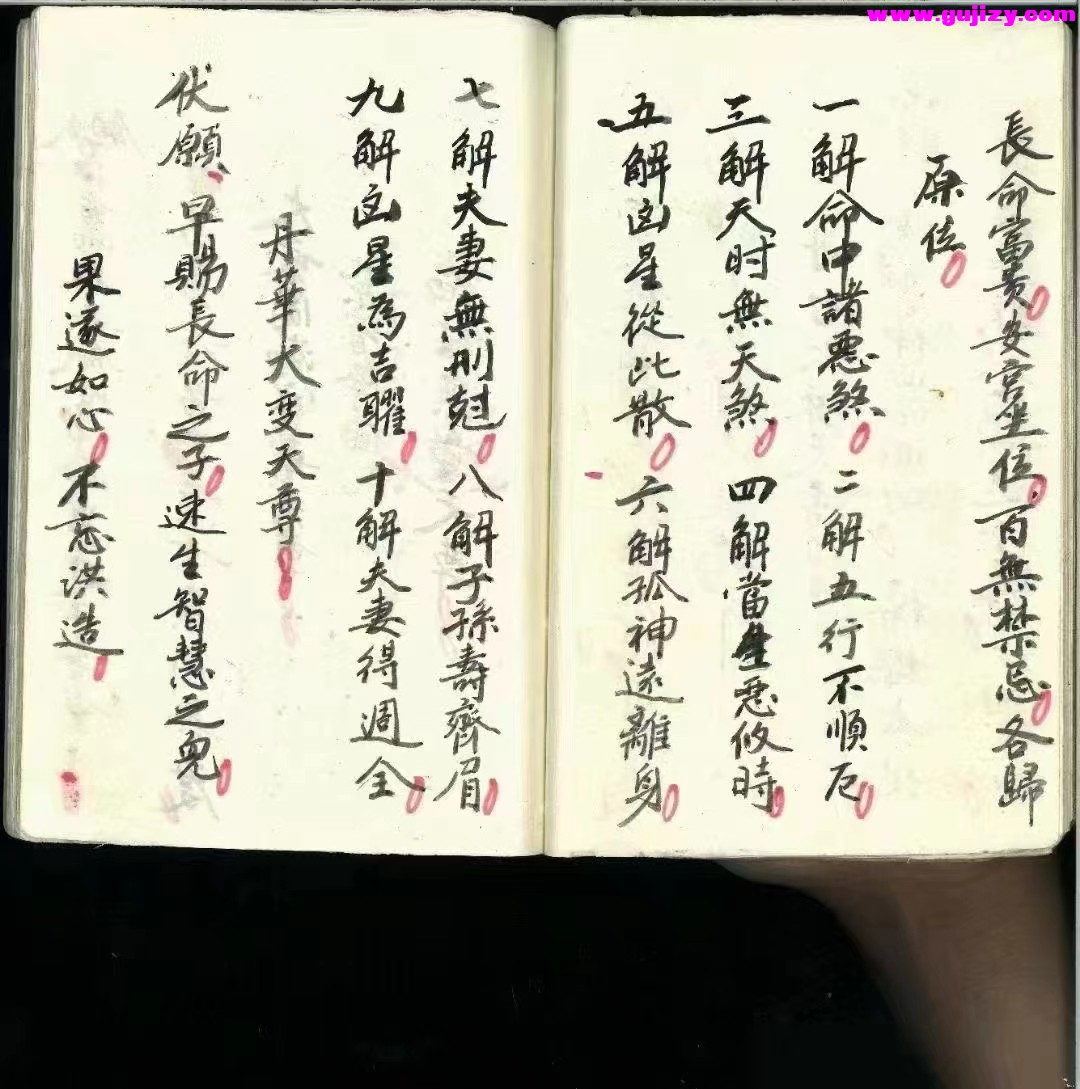 www.gujizy.com
長命富贵安宫坐位百無禁忌各歸
原位
一解命中諸惡煞 二解五行不順厄
三解天时無天煞 四解當生惡攸時
五解凶星從此散 六解孤神遠離身
七解夫妻無刑尅 八解子孫壽齊眉
九解凶星為吉曜 十解夫妻得週全
丹華大变天尊
伏願早賜長命之子速生智慧之兒
果遂如心 不忘洪造